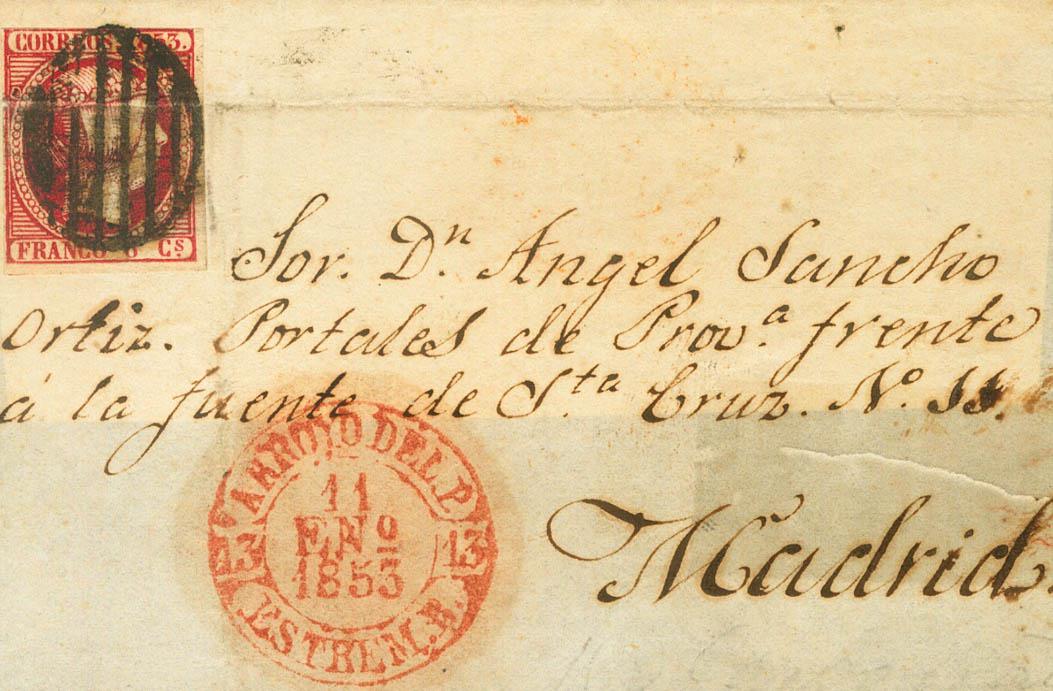 CORREOS 1853.
FRANCO 6 Cs
Sor. Dn. Angel Sancho
Ortiz. Portales de Prova. frente
á la fuente de Sta. Cruz. No.
Madrid.
ARROYO DEL P.
11
ENo
1853
13 13
ESTREM. B.